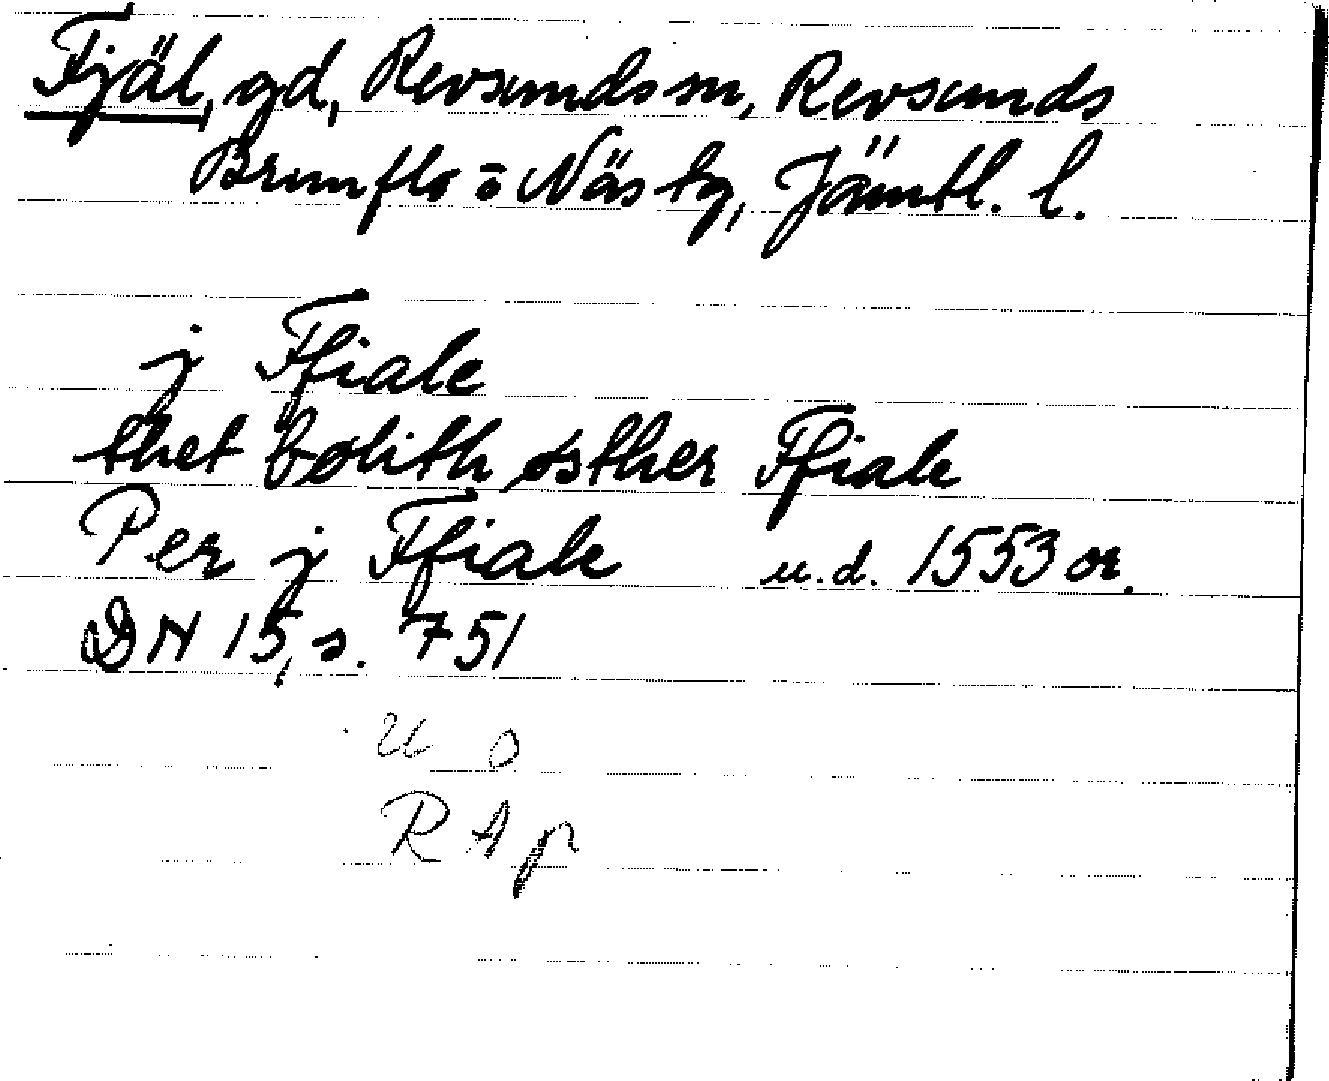 Fjäl, gd, Revsunds sn, Revsunds
Brunflo o Näs tg, Jämtl. l.
j Ffiale
thet bølith østher Ffiale
Per j Ffiale u.d. 1553 or.
DN 15, s. 751
U O
R A p